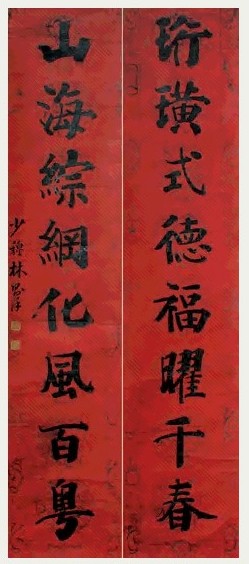 珩璜式德福曜千春
山海綜綱化風百粤
少穆林則徐